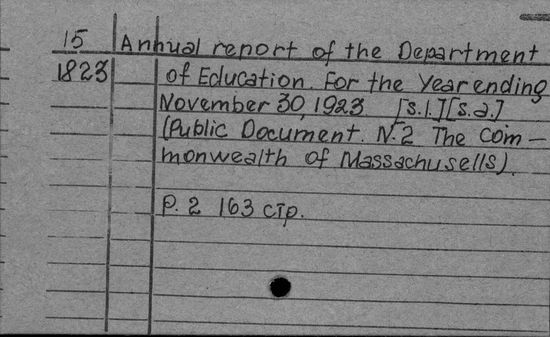 15 Annual report of the Department
1823 of Education. For the Year ending
November 30, 1923 [s.l.][s.a.]
(Public Document. N.2 The Com-
monwealth of Massachusells).
P. 2 163 cтр.